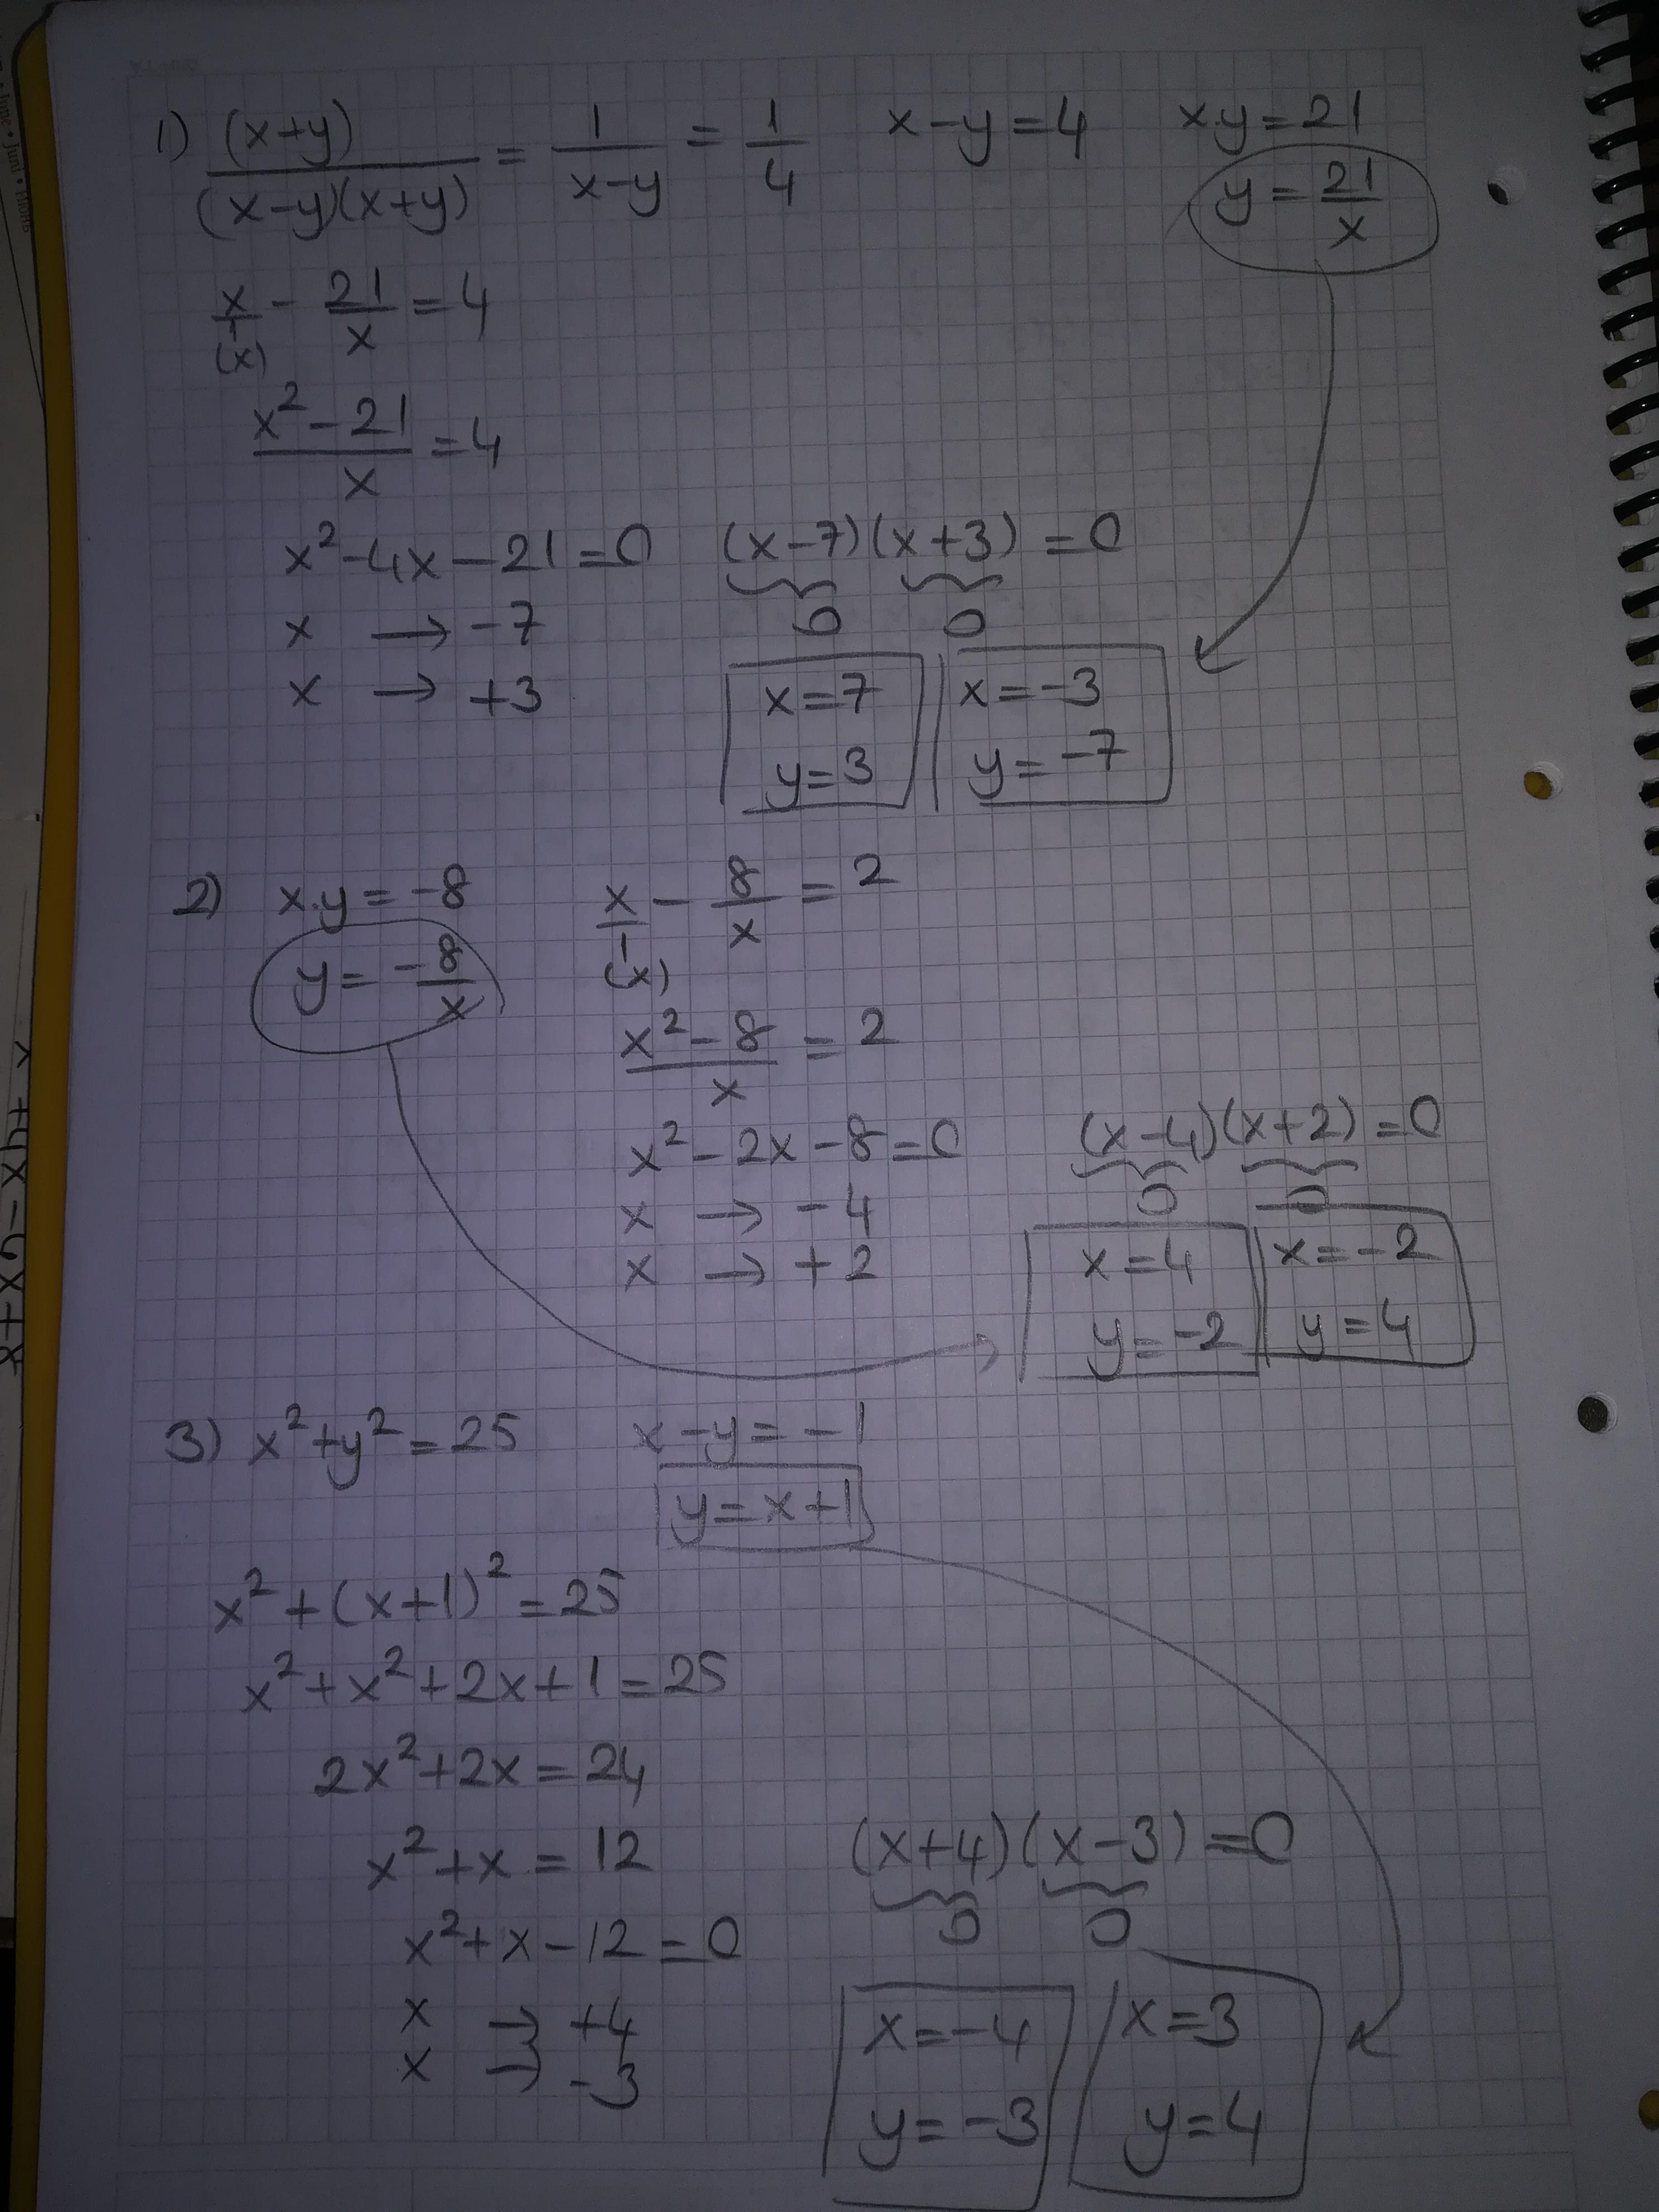 1) (x+y)/((x-y)(x+y)) = 1/(x-y) = 1/4   x-y=4   x.y=21
y = 21/x
x/1 - 21/x = 4
(x)
(x²-21)/x = 4
x²-4x-21=0   (x-7)(x+3)=0
x → -7   0   0
x → +3   x=7   x=-3
y=3   y=-7
2) x.y=-8   x/1 - 8/x = 2
(x)
y = -8/x
(x²-8)/x = 2
x²-2x-8=0   (x-4)(x+2)=0
x → -4   0   0
x → +2   x=4   x=-2
y=-2   y=4
3) x²+y²=25   x-y=-1
y=x+1
x²+(x+1)²=25
x²+x²+2x+1=25
2x²+2x=24
x²+x=12   (x+4)(x-3)=0
x²+x-12=0   0   0
x → +4   x=-4   x=3
x → -3   y=-3   y=4